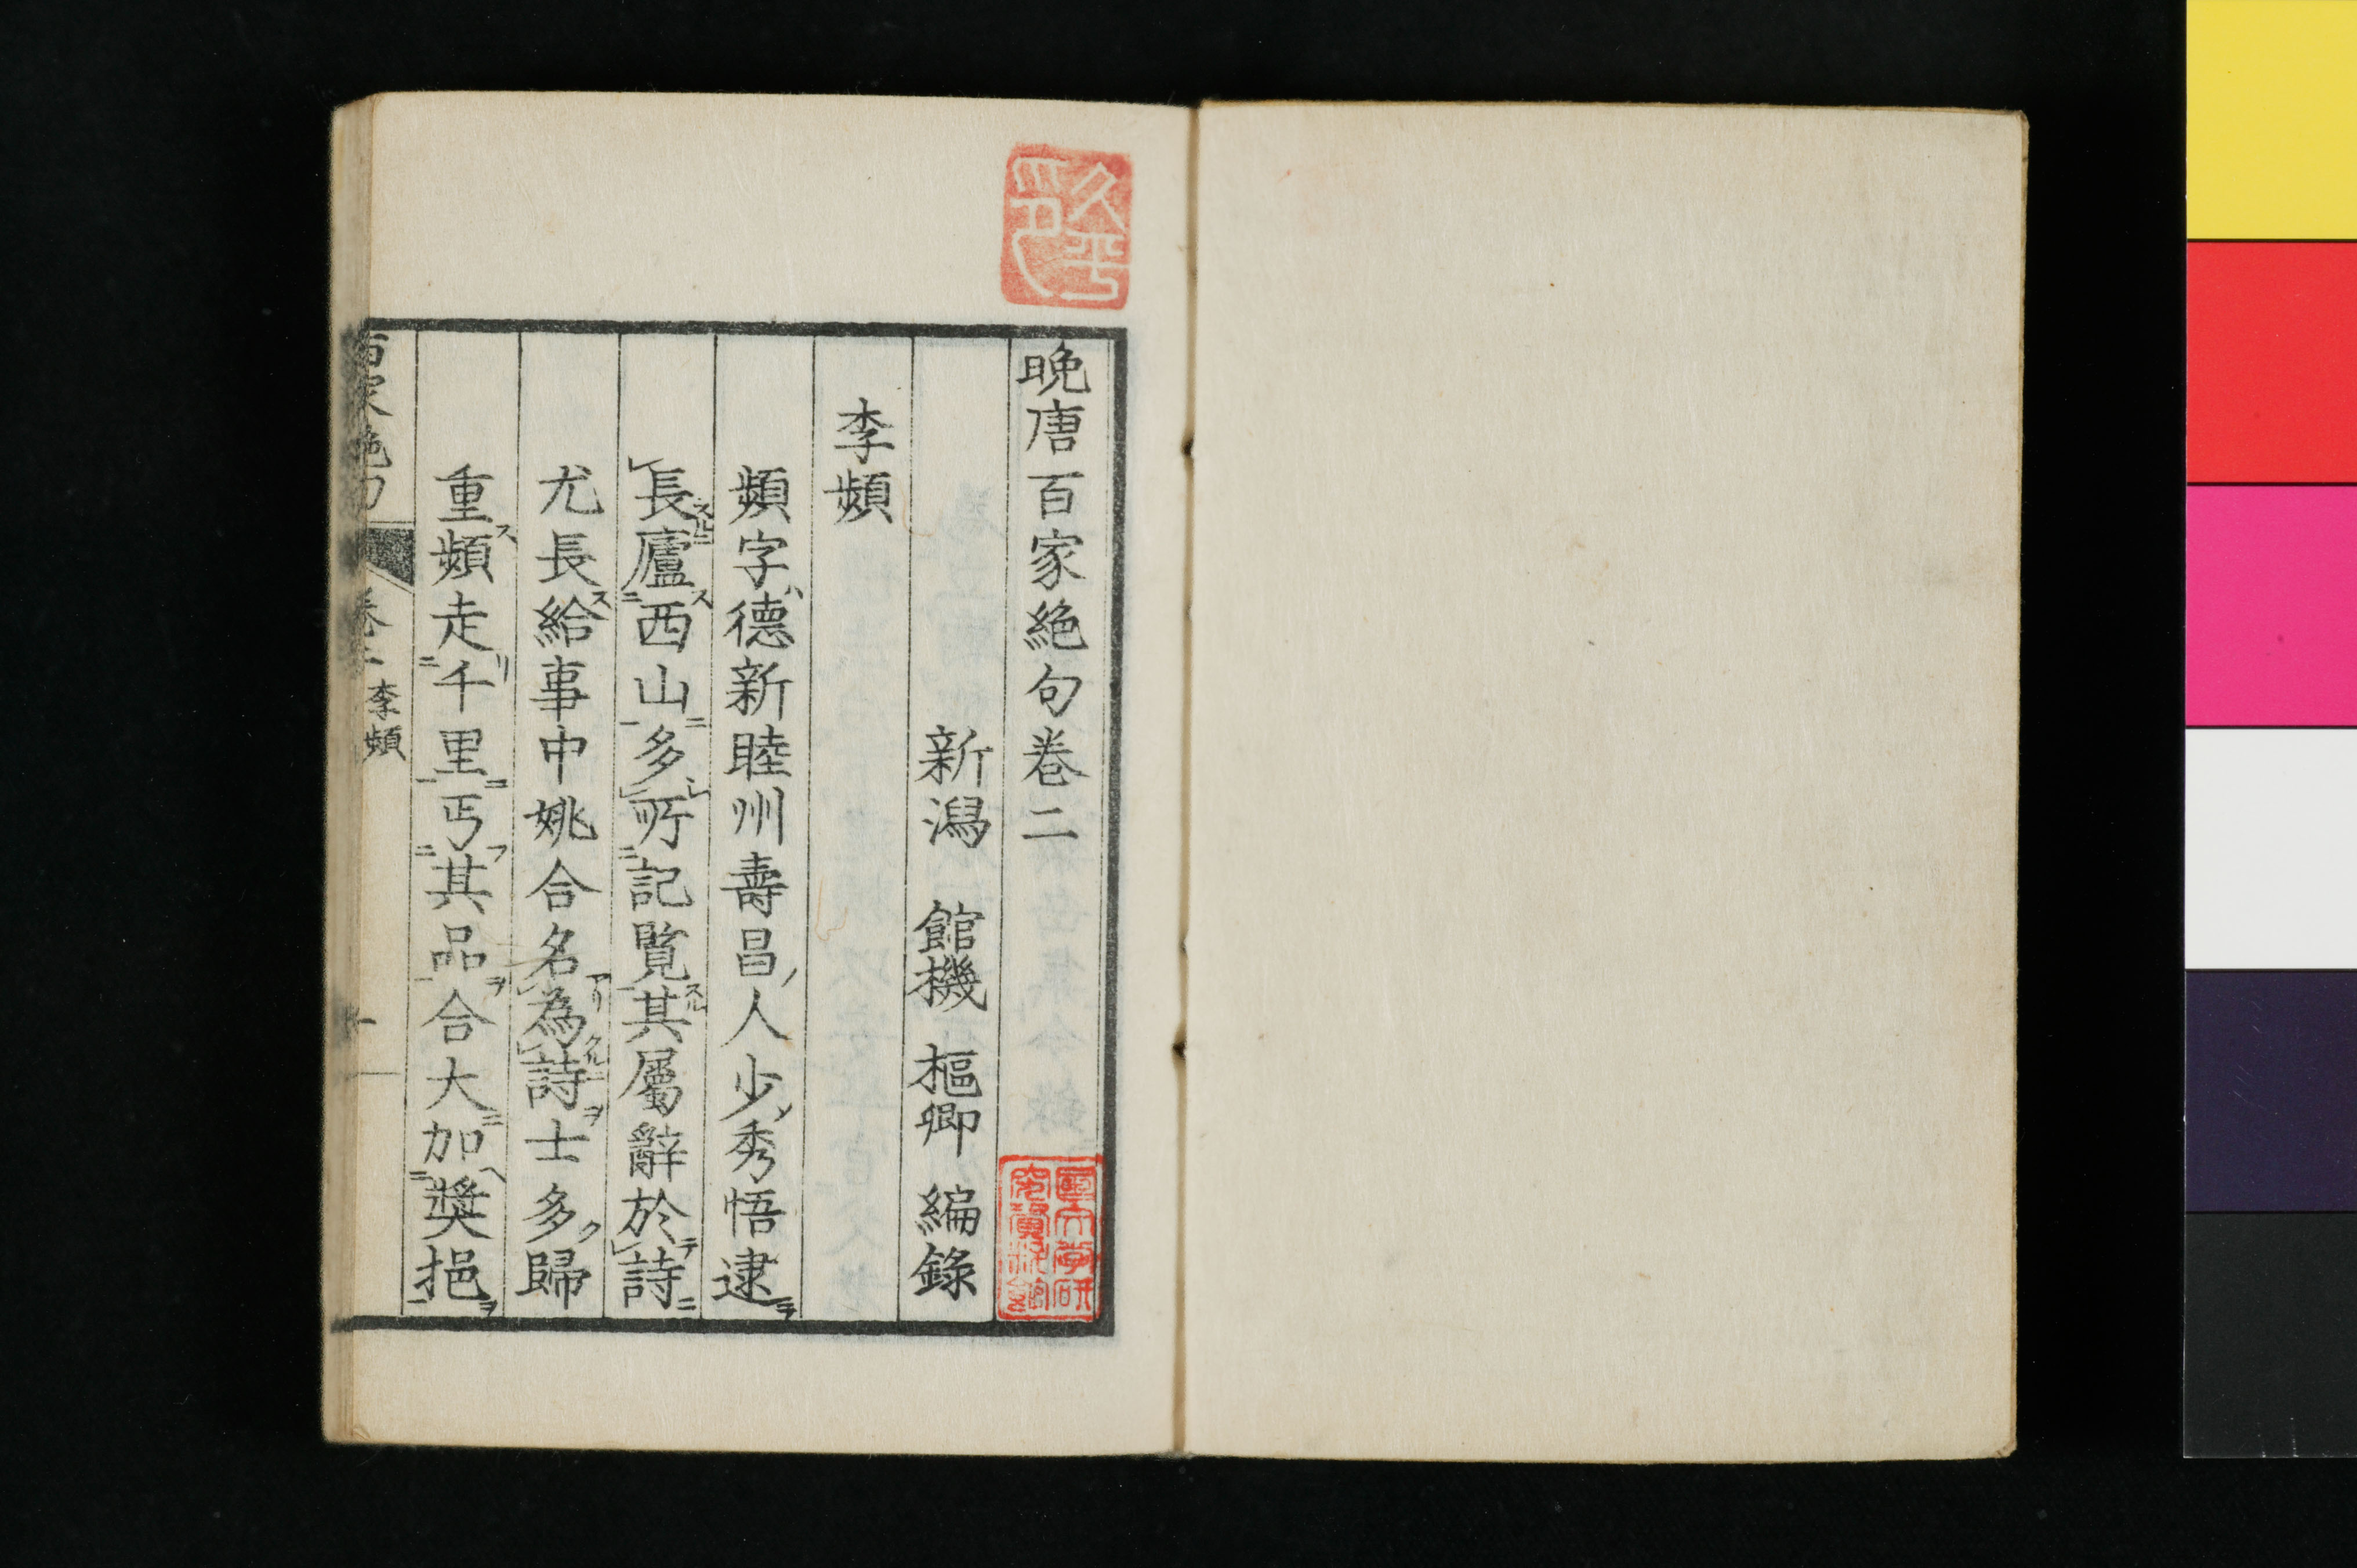 晩唐百家絶句卷二
新潟 館機 樞卿 編錄
李頻
頻字德新睦州壽昌人少秀悟逮
長廬西山多所記覧其屬辭於詩
尤長給事中姚合名為詩士多歸
重頻走千里丐其品合大加奬挹
百家絶句 卷二 李頻 一
久平印
國文学研究資料館